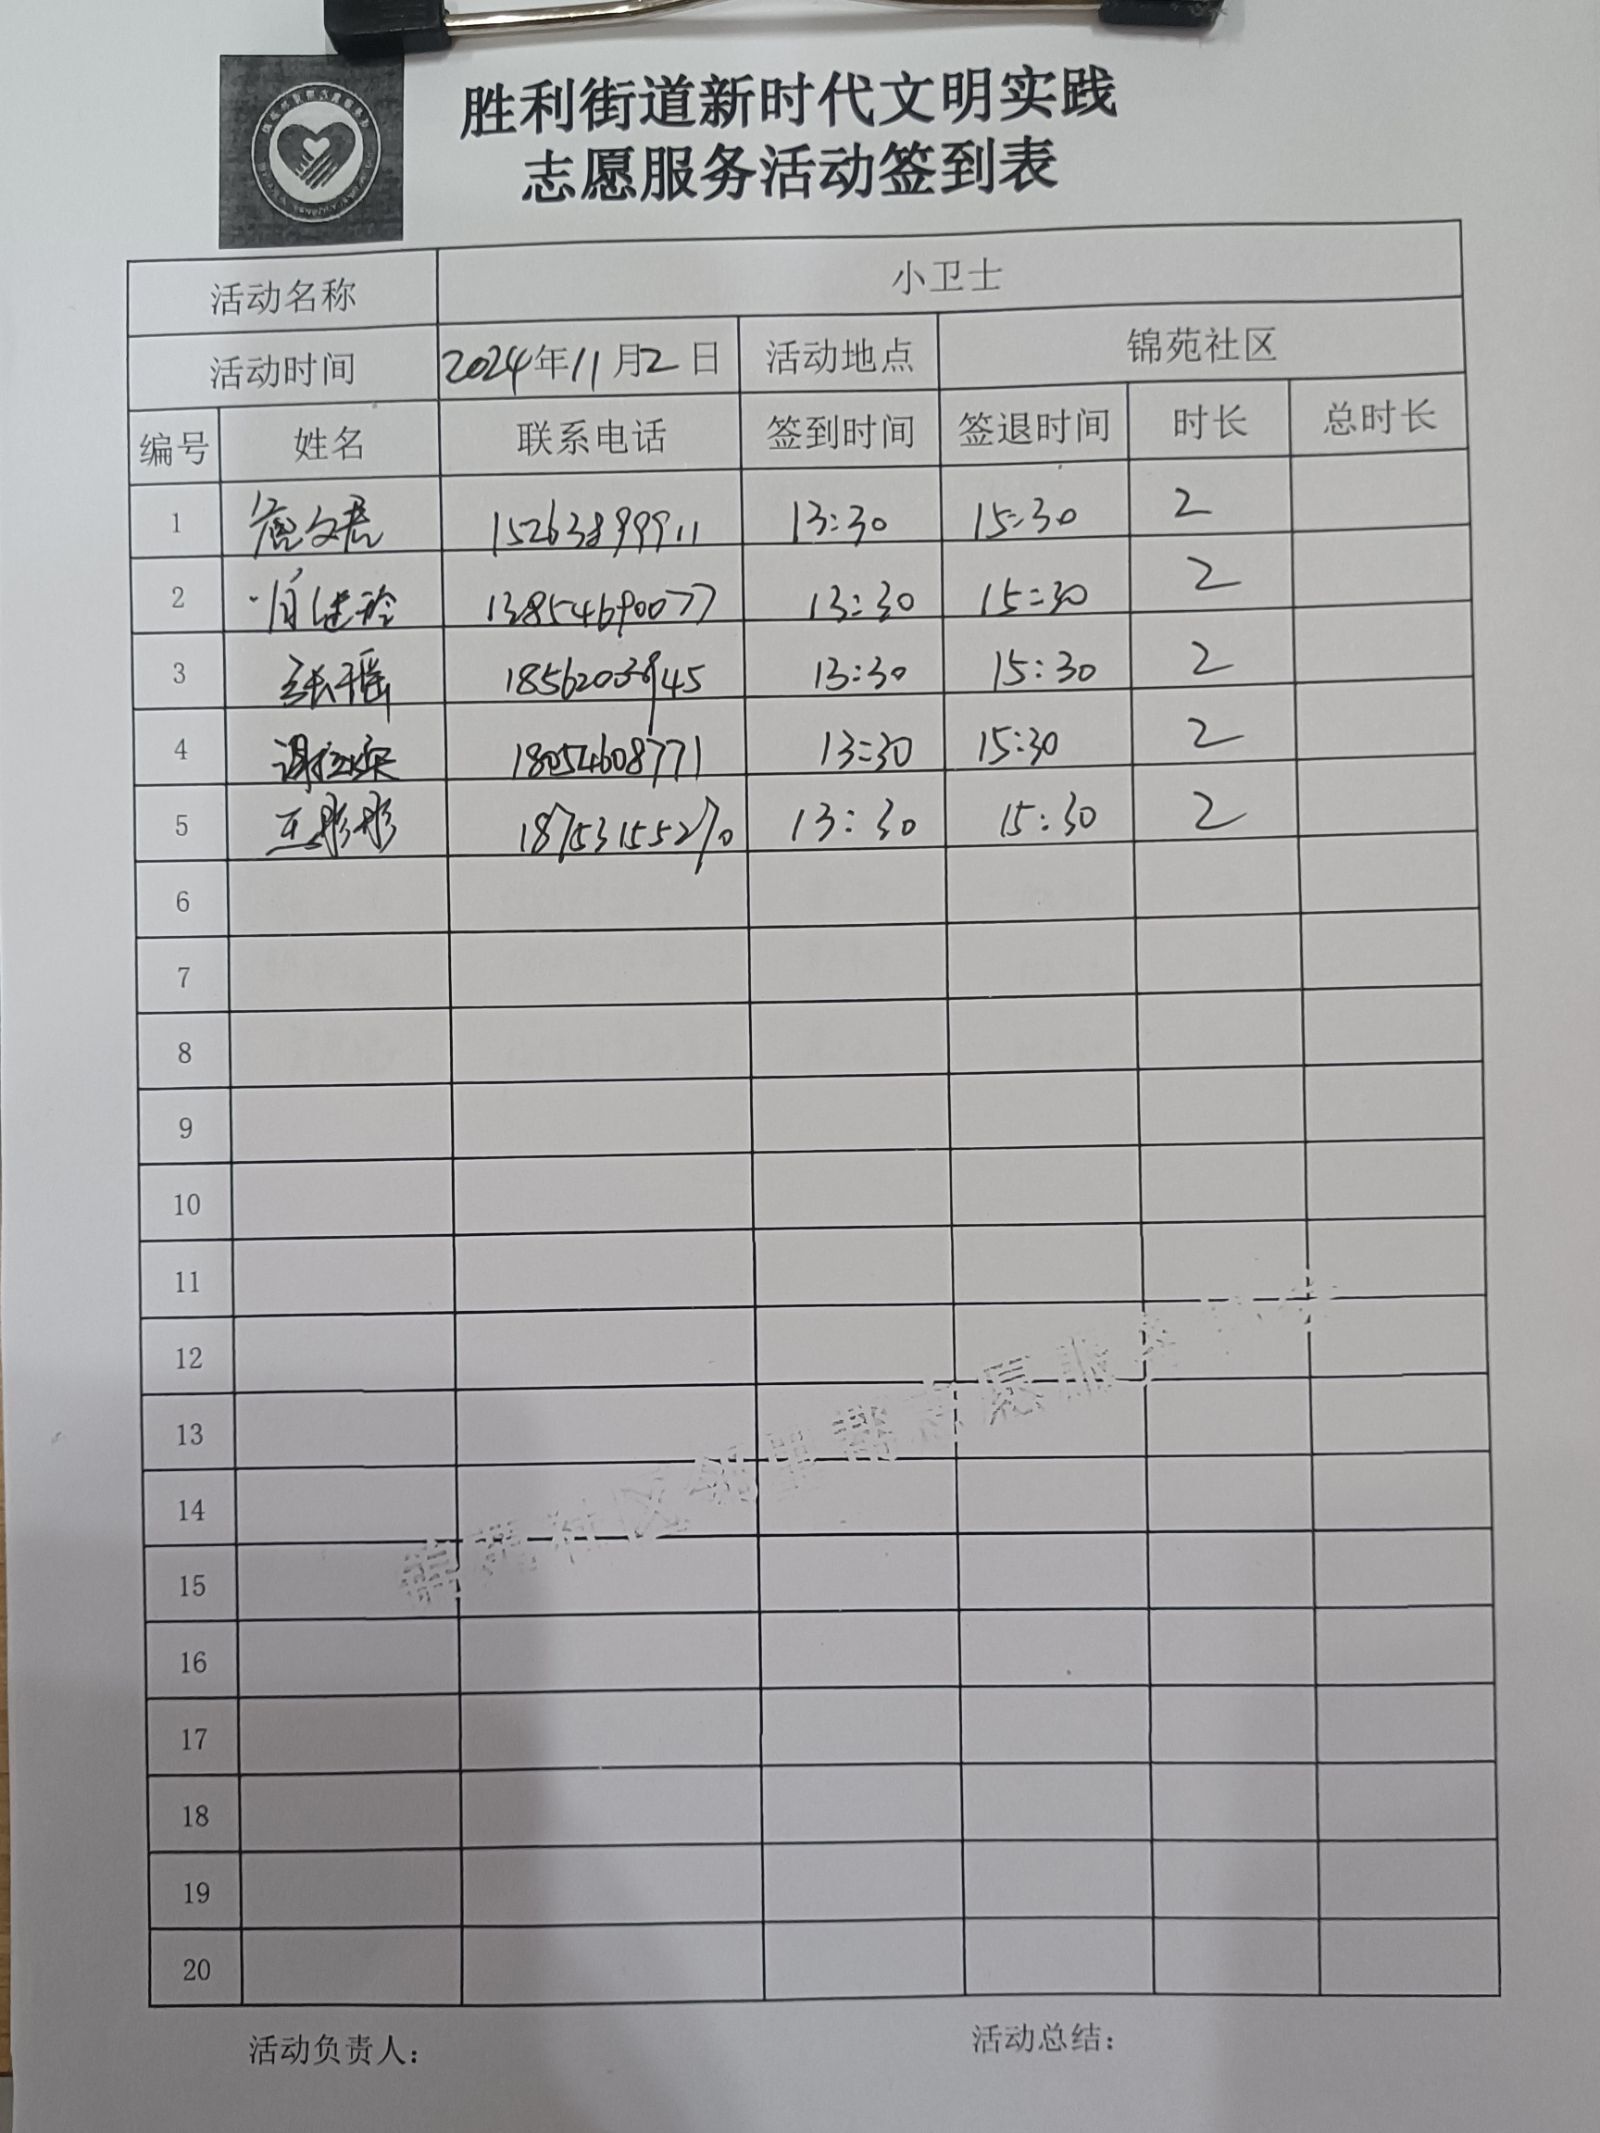 胜利街道新时代文明实践
志愿服务活动签到表
活动名称 小卫士
活动时间 2024年11月2日 活动地点 锦苑社区
编号 姓名 联系电话 签到时间 签退时间 时长 总时长
1 15263899911 13:30 15:30 2
2 13854690077 13:30 15:30 2
3 张瑶 18562038945 13:30 15:30 2
4 18054608771 13:30 15:30 2
5 王彤彤 18753155270 13:30 15:30 2
6
7
8
9
10
11
12
13
14
15
16
17
18
19
20
社区邻里帮志愿服务
活动负责人: 活动总结: